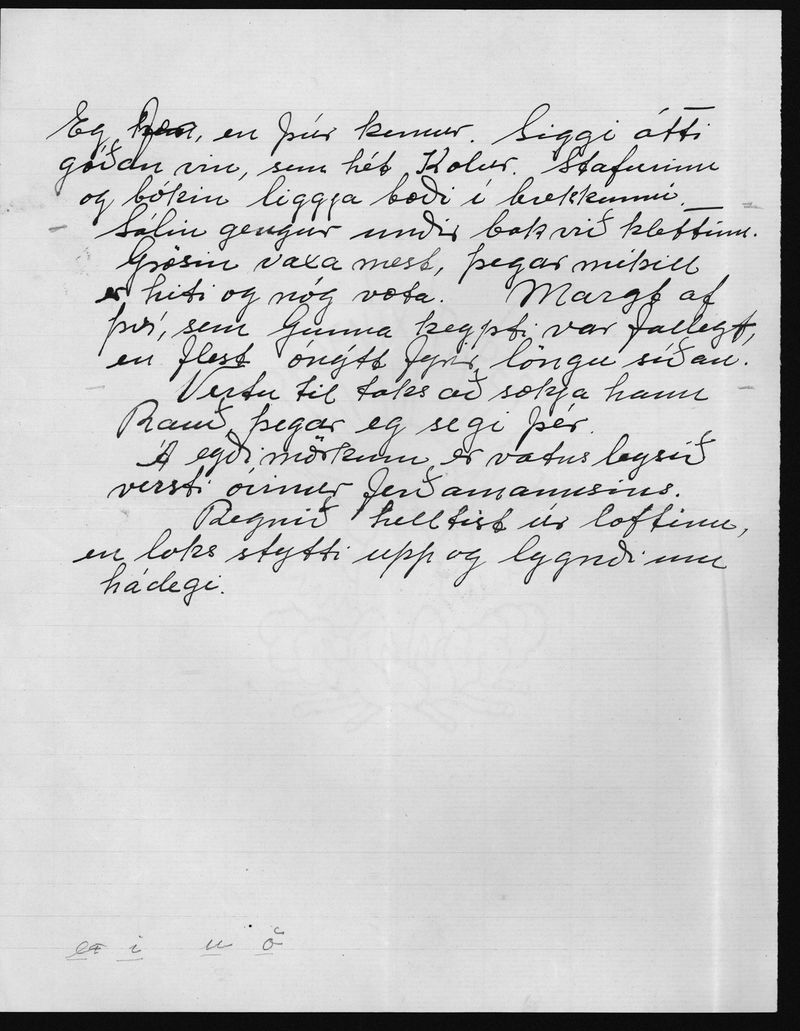 Eg fer, en þúr kemur. Siggi átti
góðan vin, sem hét Kolur. Stafurinn
og bókin liggja bæði í brekkunni.
Sólin gengur undir bak við klettinn.
Grösin vaxa mest, þegar mikill
er hiti og nóg væta. Margt af
því, sem Gunna keypti var fallegt,
en flest ónýtt fyrir löngu síðan.
Vertu til taks að sækja hann
Rauð, þegar eg segi þér.
Á eyðimörkum er vatnsleysið
versti óvinur ferðamannsins.
Regnið helltist úr loftinu,
en loks stytti upp og lygndi um
hádegi.
æ i u ö